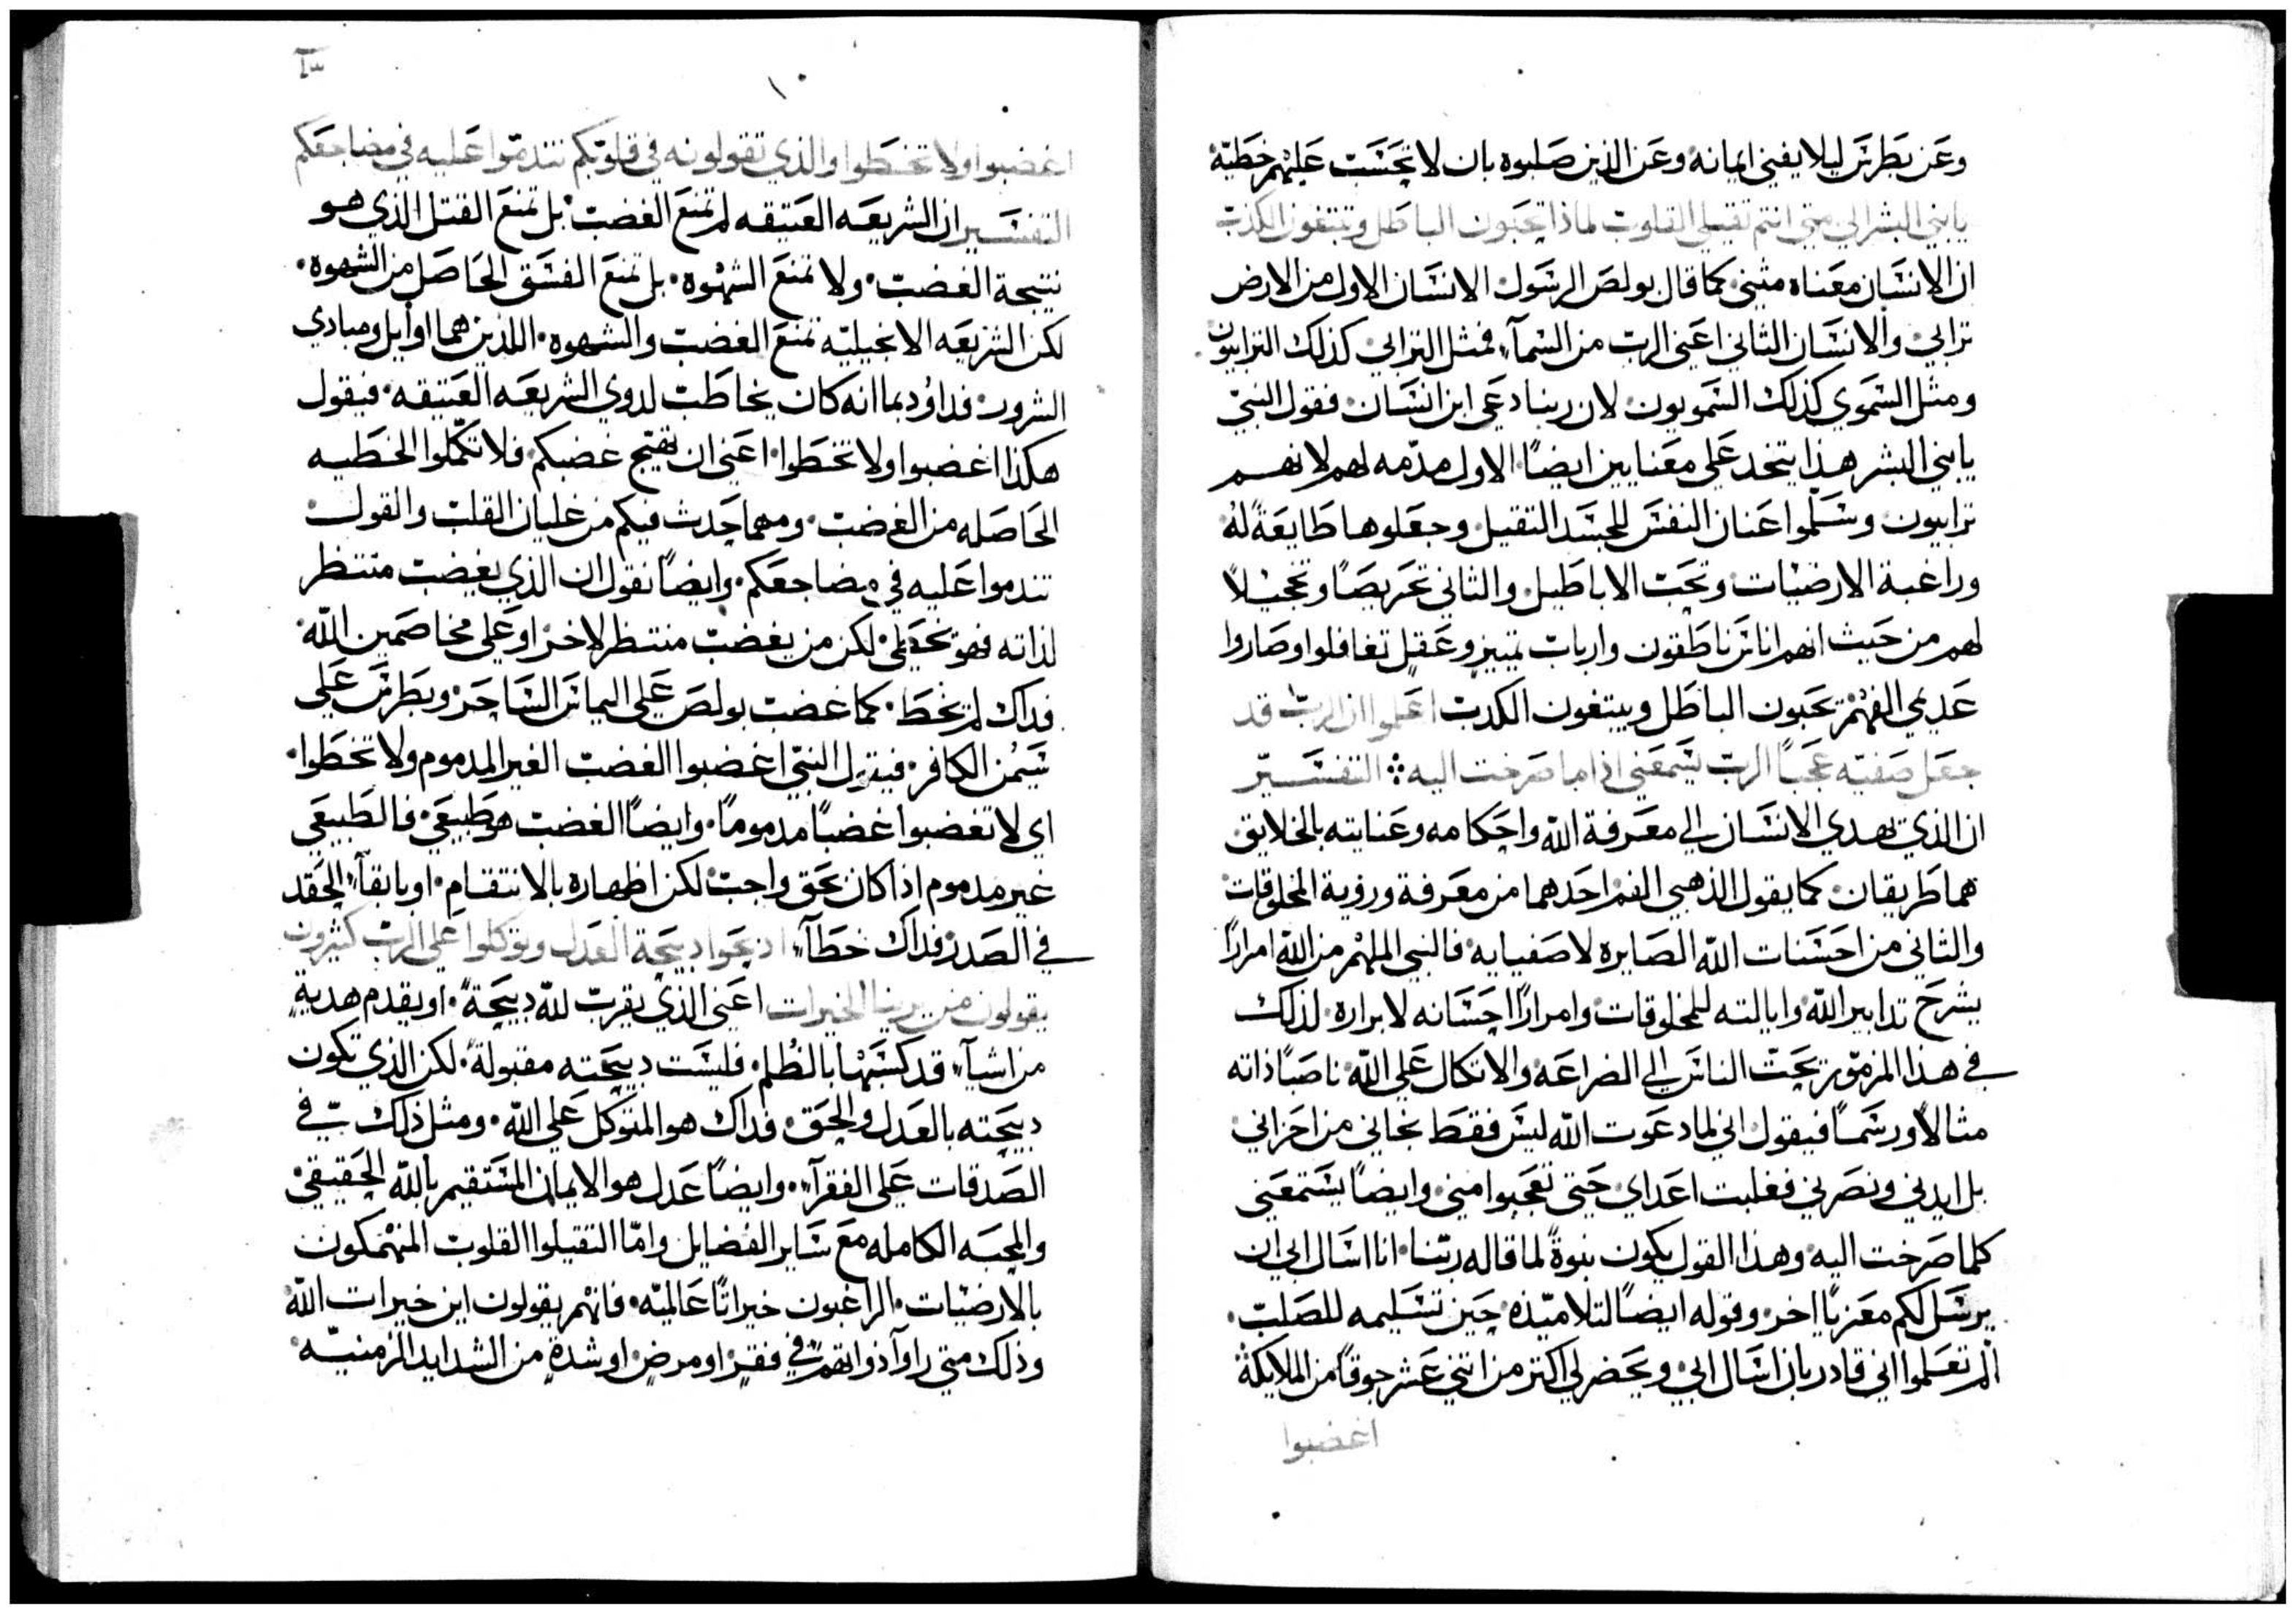 وعن بطرس ليلا يفني ايمانه وعن الذين صلبوه بان لا تحسب عليهم خطية
يا بني البشر الي متي انتم تقيلي القلوب لماذا تحبون الباطل وتبتغون الكذب
ان الانسان معناه مثني كما قال بولص الرسول الانسان الاول من الارض
ترابي والانسان الثاني اعني الرب من السمآء فمثل الترابي كذلك الترابيون
ومثل السموي كذلك السمويون لان ربنا دعي ابن انسان فقول النبي
يا بني البشر هذا يتخد علي معنايين ايضًا الاول مدمه لهم لانهم
ترابيون وسلموا عنان النفس للجسد التقيل وجعلوها طايعةً له
وراغبة الارضيات وتحب الاباطيل والثاني تحريصًا وتخجيلاً
لهم من حيث انهم اناس ناطقون وارباب تمييز وعقل تغافلوا وصاروا
عديمي الفهم تحبون الباطل ويبتغون الكدب اعلموا ان الرب قد
جعل صفيه عجبًا الرب يسمعني اذا ما صرخت اليه ⁘ التفسير
ان الذي تهدي الانسان الي معرفة الله واحكامه وعنايته بالخلايق
هما طريقان كما يقول الذهبي الفم احدهما من معرفة وروية المخلوقات
والثاني من احسنات الله الصايره لاصفيايه فالنبي الملهم من الله امرارًا
يشرح تدابير الله وايالته للمخلوقات وامرارًا احسانه لابراره لذلك
في هذا المزمور يحت الناس الي الضراعه والاتكال علي الله ناصبًا ذاته
مثالاً ورسمًا فيقول اني لما دعوت الله ليس فقط نجاني من احزاني
بل ايدني ونصرني فغلبت اعداي حتي تعجبوا مني وايضًا يستمعني
كلما صرخت اليه وهذا القول يكون بنوةً لما قاله ربنا انا اسال ابي ان
يرسل لكم معزيًا اخر وقوله ايضًا لتلاميذه حين تسليمه للصلب
الم تعلموا اني قادر بان اسال ابي ويحضر لي اكتر من اتني عشر جوقًا من الملايكة
اغضبوا
١٠
اغضبوا ولا تخطوا والذي تقولونه في قلوبكم تندموا عليه في مضاجعكم
التفسير ان الشريعه العتيقه لم تمنع الغضب بل تمنع القتل الذي هو
نتيجة الغضب ولا تمنع الشهوه بل تمنع الفسق الحاصل من الشهوه
لكن الشريعه الانجيليه تمنع الغضب والشهوه اللذين هما اوايل ومبادي
الشرور فداوُد بما انه كان يخاطب لدوي الشريعه العتيقه فيقول
هكذا اغضبوا ولا تخطوا اعني ان تهيج غضبكم فلا تكملوا الخطيه
الحاصله من الغضب ومهما حدث فيكم من غليان القلب والقول
تندموا عليه في مضاجعكم وايضًا نقول ان الذي يغضب منتظر
لذاته فهو يخطي لكن من يغضب منتظر لاخر او علي مخاصمين الله
فداك لم يخط كما غضب بولص علي اليماس الساحر وبطرس علي
سيمن الكافر فيقول النبي اغضبوا الغضب الغير المدموم ولا تخطوا
اي لا تغضبوا غضبًا مدمومًا وايضًا الغضب هو طبيعي فالطبيعي
غير مدموم اذا كان بحق واجب لكن اظهاره بالانتقام او بابقآء الحقد
في الصدر فداك خطآء ادبحوا دبيحة العدل وتوكلوا علي الرب كثيرون
يقولون من يرينا الخيرات اعني الذي يقرب لله دبيحةً او يقدم هديةٍ
من اشيآء قد كسبها بالظلم فليست دبيحته مقبولة لكن الذي تكون
دبيحته بالعدل والحق فداك هو المتوكل علي الله ومثل ذلك في
الصدقات علي الفقرآء وايضًا عدل هو الايمان المستقيم بالله الحقيقي
والمحبه الكامله مع ساير الفضايل واما التقيلوا القلوب المنهمكون
بالارضيات الراغبون خيراتًا عالميه فانهم يقولون اين خيرات الله
وذلك متي راوآ ذواتهم في فقرٍ او مرضٍ او شدةٍ من الشدايد الزمنيه